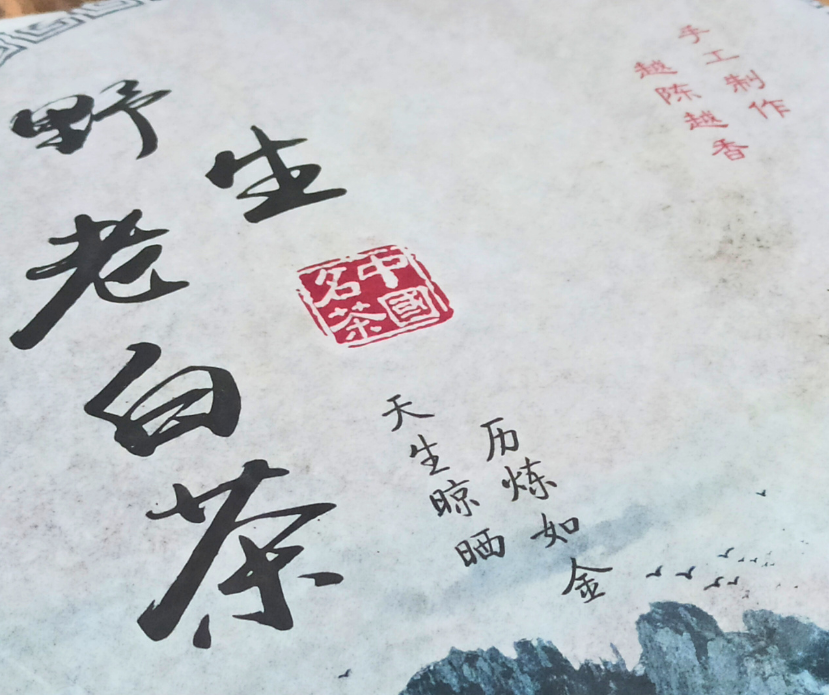 野生
老白茶
中國
名茶
手工制作
越陈越香
天生晾晒
历炼如金